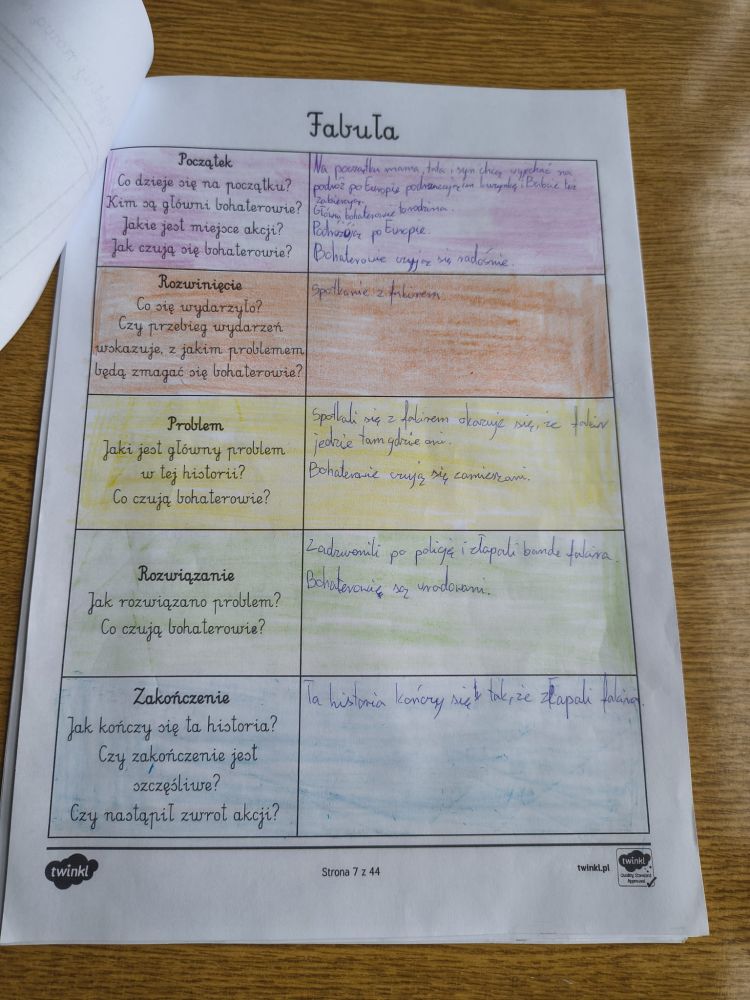 Fabuła
Początek
Co dzieje się na początku?
Kim są główni bohaterowie?
Jakie jest miejsce akcji?
Jak czują się bohaterowie?
Na początku mama, tata i syn chcą wyjechać na
podróż po Europie i Babcie też
zabierają.
Główni bohaterowie to rodzina.
Podróżują po Europie.
Bohaterowie czyją się radośnie.
Rozwinięcie
Co się wydarzyło?
Czy przebieg wydarzeń
wskazuje, z jakim problemem
będą zmagać się bohaterowie?
Spotkanie z fakirem.
Problem
Jaki jest główny problem
w tej historii?
Co czują bohaterowie?
Spotkali się z fakirem okazuje się, że fakir
jedzie tam gdzie oni.
Bohaterowie czują się zamieszani.
Rozwiązanie
Jak rozwiązano problem?
Co czują bohaterowie?
Zadzwonili po policję i złapali bande fakira.
Bohaterowie są uradowani.
Zakończenie
Jak kończy się ta historia?
Czy zakończenie jest
szczęśliwe?
Czy nastąpił zwrot akcji?
Ta historia kończy się tak, że złapali fakira.
twinkl
Strona 7 z 44
twinkl.pl
twinkl
Quality Standard
Approved